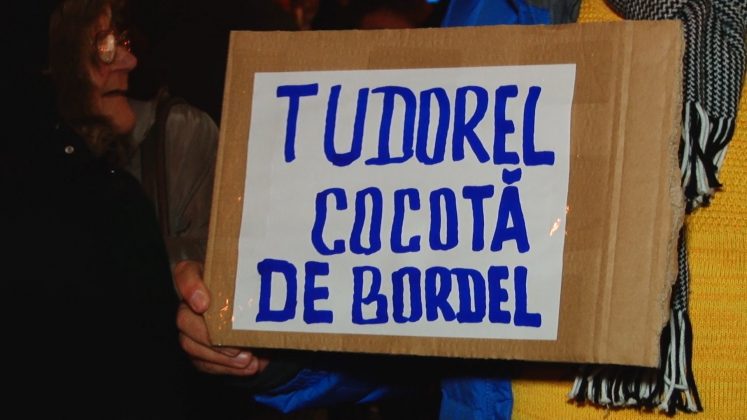 TUDOREL
COCOTĂ
DE BORDEL